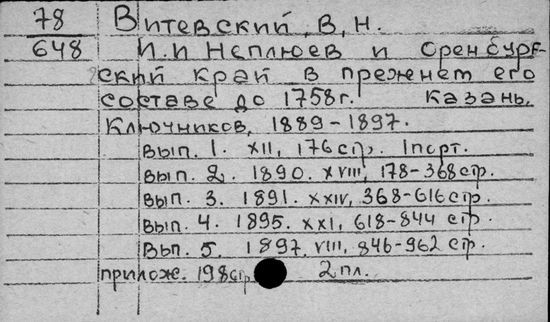 78 Витевский, В, Н.
648 И.И Неплюев и Оренбург-
ский край в прежнем его
составе до 1758г. Казань,
Ключников, 1889-1897.
Вып. 1. XII, 176стр. 1порт.
Вып. 2. 1890. XVIII, 178-368стр.
Вып. 3. 1891. XXIV, 368-616стр.
Вып. 4. 1895. XXI, 618-844 стр.
Вып. 5. 1897. VIII, 846-962 стр.
прилож. 198стр. 2пл.